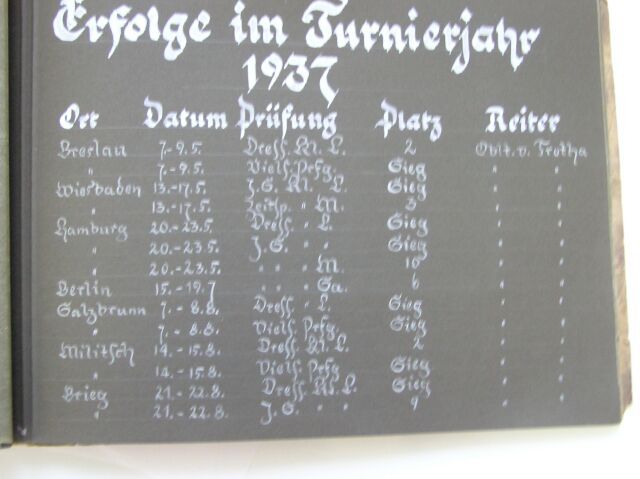 Erfolge im Turnierjahr
1937
Ort Datum Prüfung Platz Reiter
Breslau 7.-9.5. Dress. Kl. L. 2 Oblt. v. Trotha
" 7.-9.5. Viels. Prfg. Sieg " "
Wiesbaden 13.-17.5. J.S. Kl. L. Sieg " "
" 13.-17.5. Zeitsp. " M. 3 " "
Hamburg 20.-23.5. Dress. " L. Sieg " "
" 20.-23.5. J.S. " " Sieg " "
" 20.-23.5. " " " M. 10 " "
Berlin 15.-19.7 " " " Sa. 6 " "
Salzbrunn 7.-8.8. Dress. " L. Sieg " "
" 7.-8.8. Viels. Prfg. Sieg " "
Militsch 14.-15.8. Dress. Kl. L. 2 " "
" 14.-15.8. Viels. Prfg. Sieg " "
Brieg 21.-22.8. Dress. Kl. L. Sieg " "
" 21.-22.8. J.S. " " 9 " "